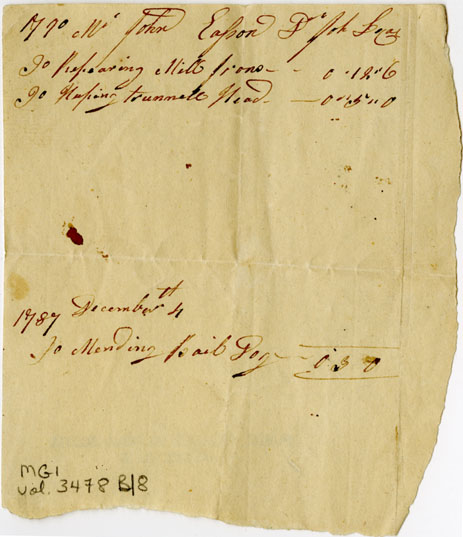 1790 Mr John Easson Dr Joh
To Repearing Mill Irons 0 " 12 " 6
To Huping trunnell Head 0 " 5 " 0
1787 December th 4
To Mending Dog 0 3 0
MG1
vol. 3478 B/8